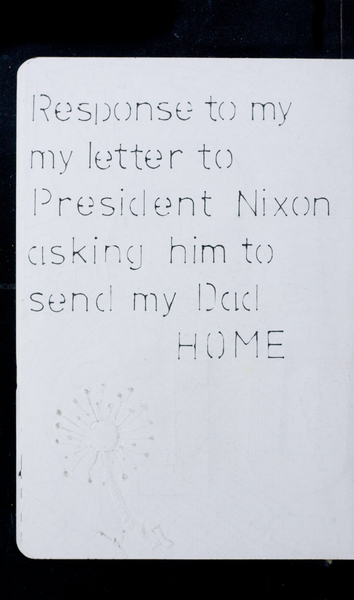 Response to my
my letter to
President Nixon
asking him to
send my Dad
HOME